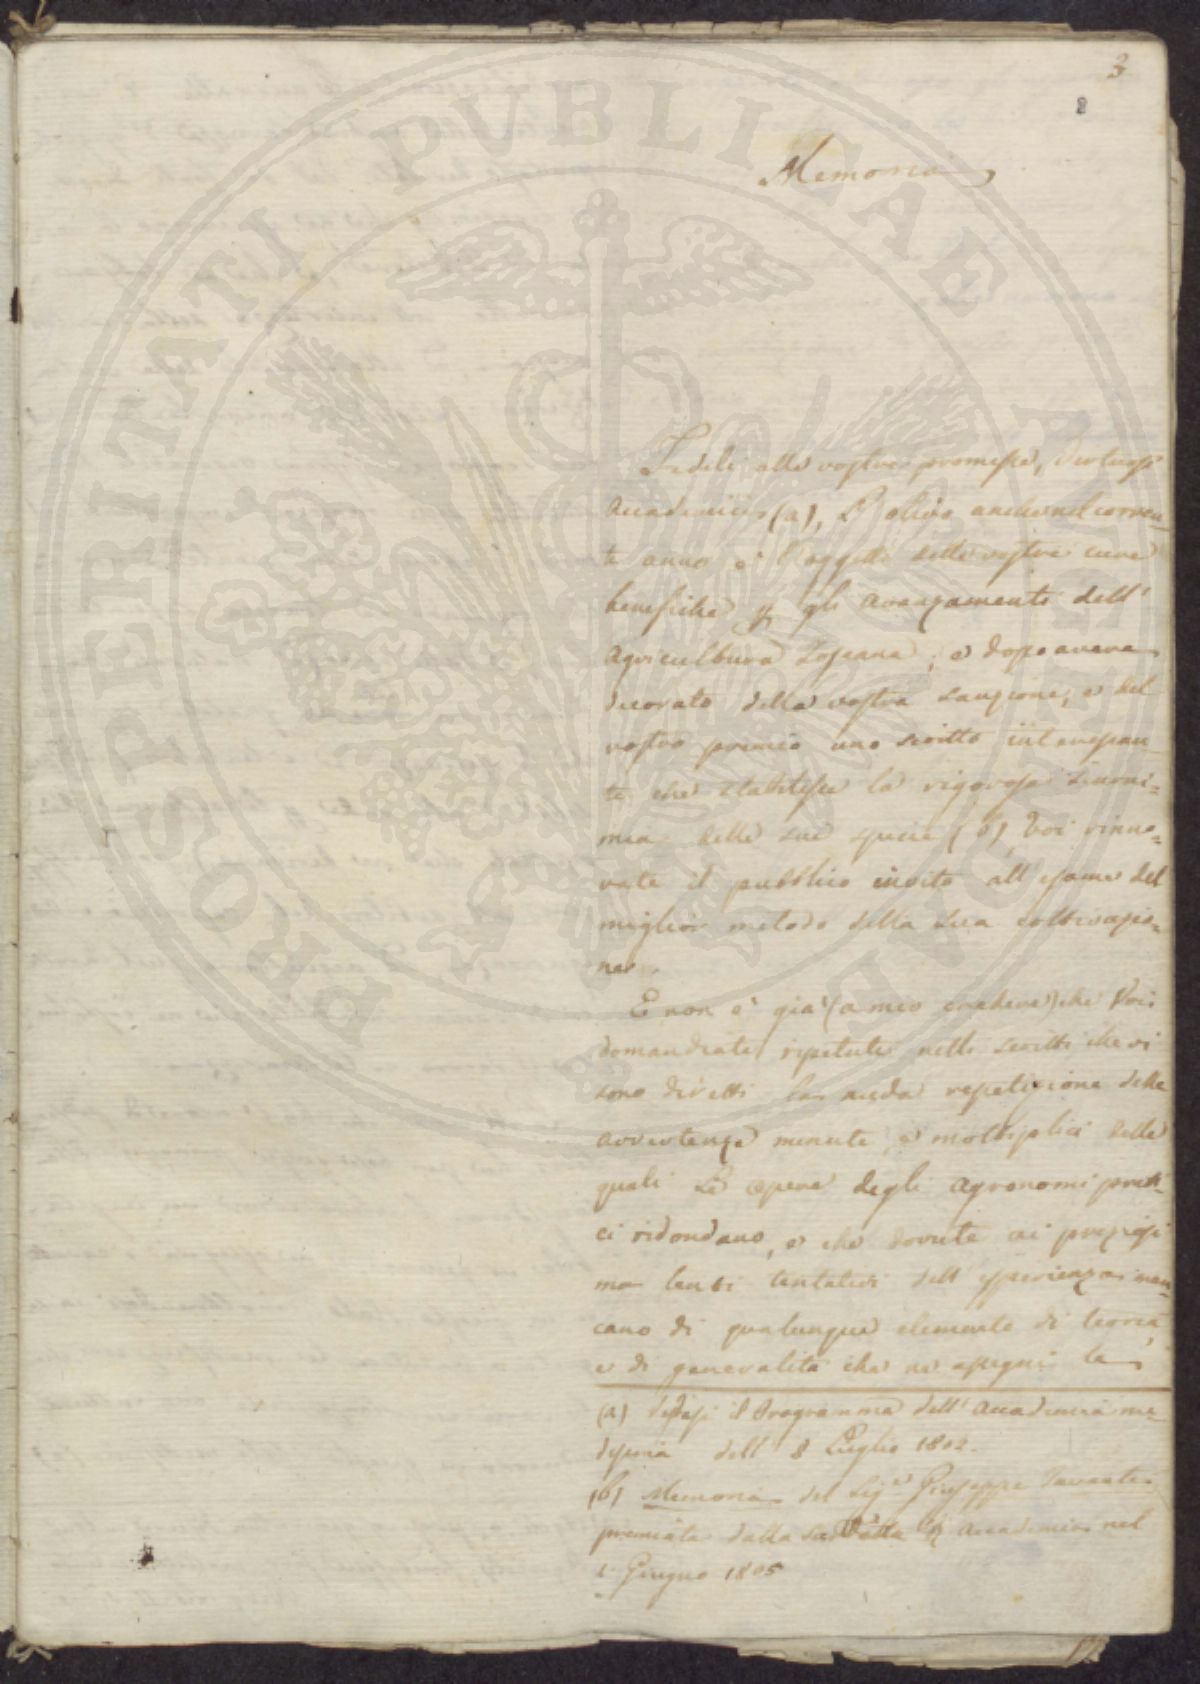 3
8
Memoria
Fedeli alle vostre promesse, virtuosi
Accademici (a), L'olivo anche nel corren-
te anno è l'oggetto delle vostre cure
benefiche p gli avanzamenti dell'
Agricultura Toscana; e dopo avere
decorato della vostra sanzione, e del
vostro premio uno scritto interessan-
te che stabilisce la rigorosa sinoni=
mia delle sue specie (b), Voi rinno=
vate il pubblico invito all'esame del
miglior metodo della sua coltivazio=
ne.
E non è già (a mio credere) che Voi
domandiate ripetute nelli scritti che vi
sono diretti la nuda repetizione delle
avvertenze minute, e moltiplici delle
quali Le opere degli Agronomi prati-
ci ridondano, e che dovute ai preziosi
ma lenti tentativi dell'esperienza man-
cano di qualunque elemento di teoria,
e di generalità che ne assegni la
(a) Vedasi il Programma dell'Accademia me-
desima dell' 8 Luglio 1802.
(b) Memoria del Sig.e Giuseppe Tavanti
premiata dalla Sud.detta R Accademia nel
1. Giugno 1805
PROSPERITATI PUBLICAE AUGENDAE